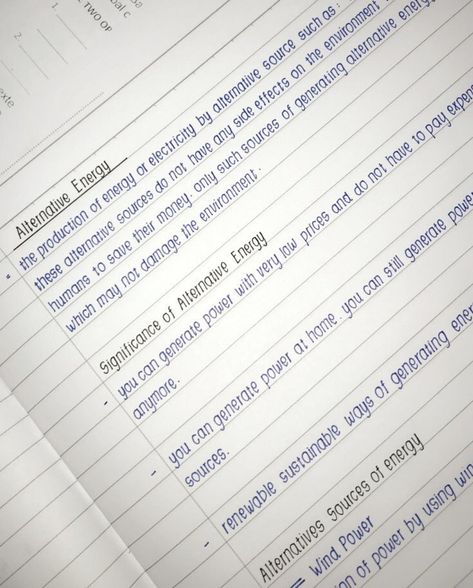 TWO OF
1.
2.
Alternative Energy
- the production of energy or electricity by alternative source such as :
these alternative sources do not have any side effects on the environment
humans to save their money. only such sources of generating alternative energy
which may not damage the environment.
Significance of Alternative Energy
- you can generate power with very low prices and do not have to pay
anymore.
- you can generate power at home. you can still generate power
sources.
- renewable sustainable ways of generating
Alternatives Sources of energy
= Wind Power
of power by using